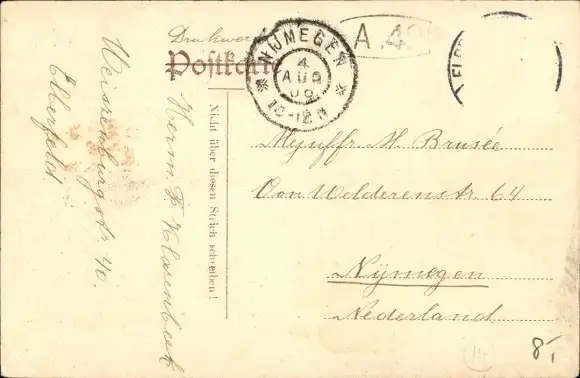 Drukwerk
Postkarte
NIJMEGEN
4
AUG
09
10-12 N
A.49
ELB
Nicht über diesen Strich schreiben!
Herrn. F.
Weissenburgstr. 40.
Elberfeld.
Mejuffr. M. Brusée
Van Weldrenstr 64
Nijmegen
Nederland
8,